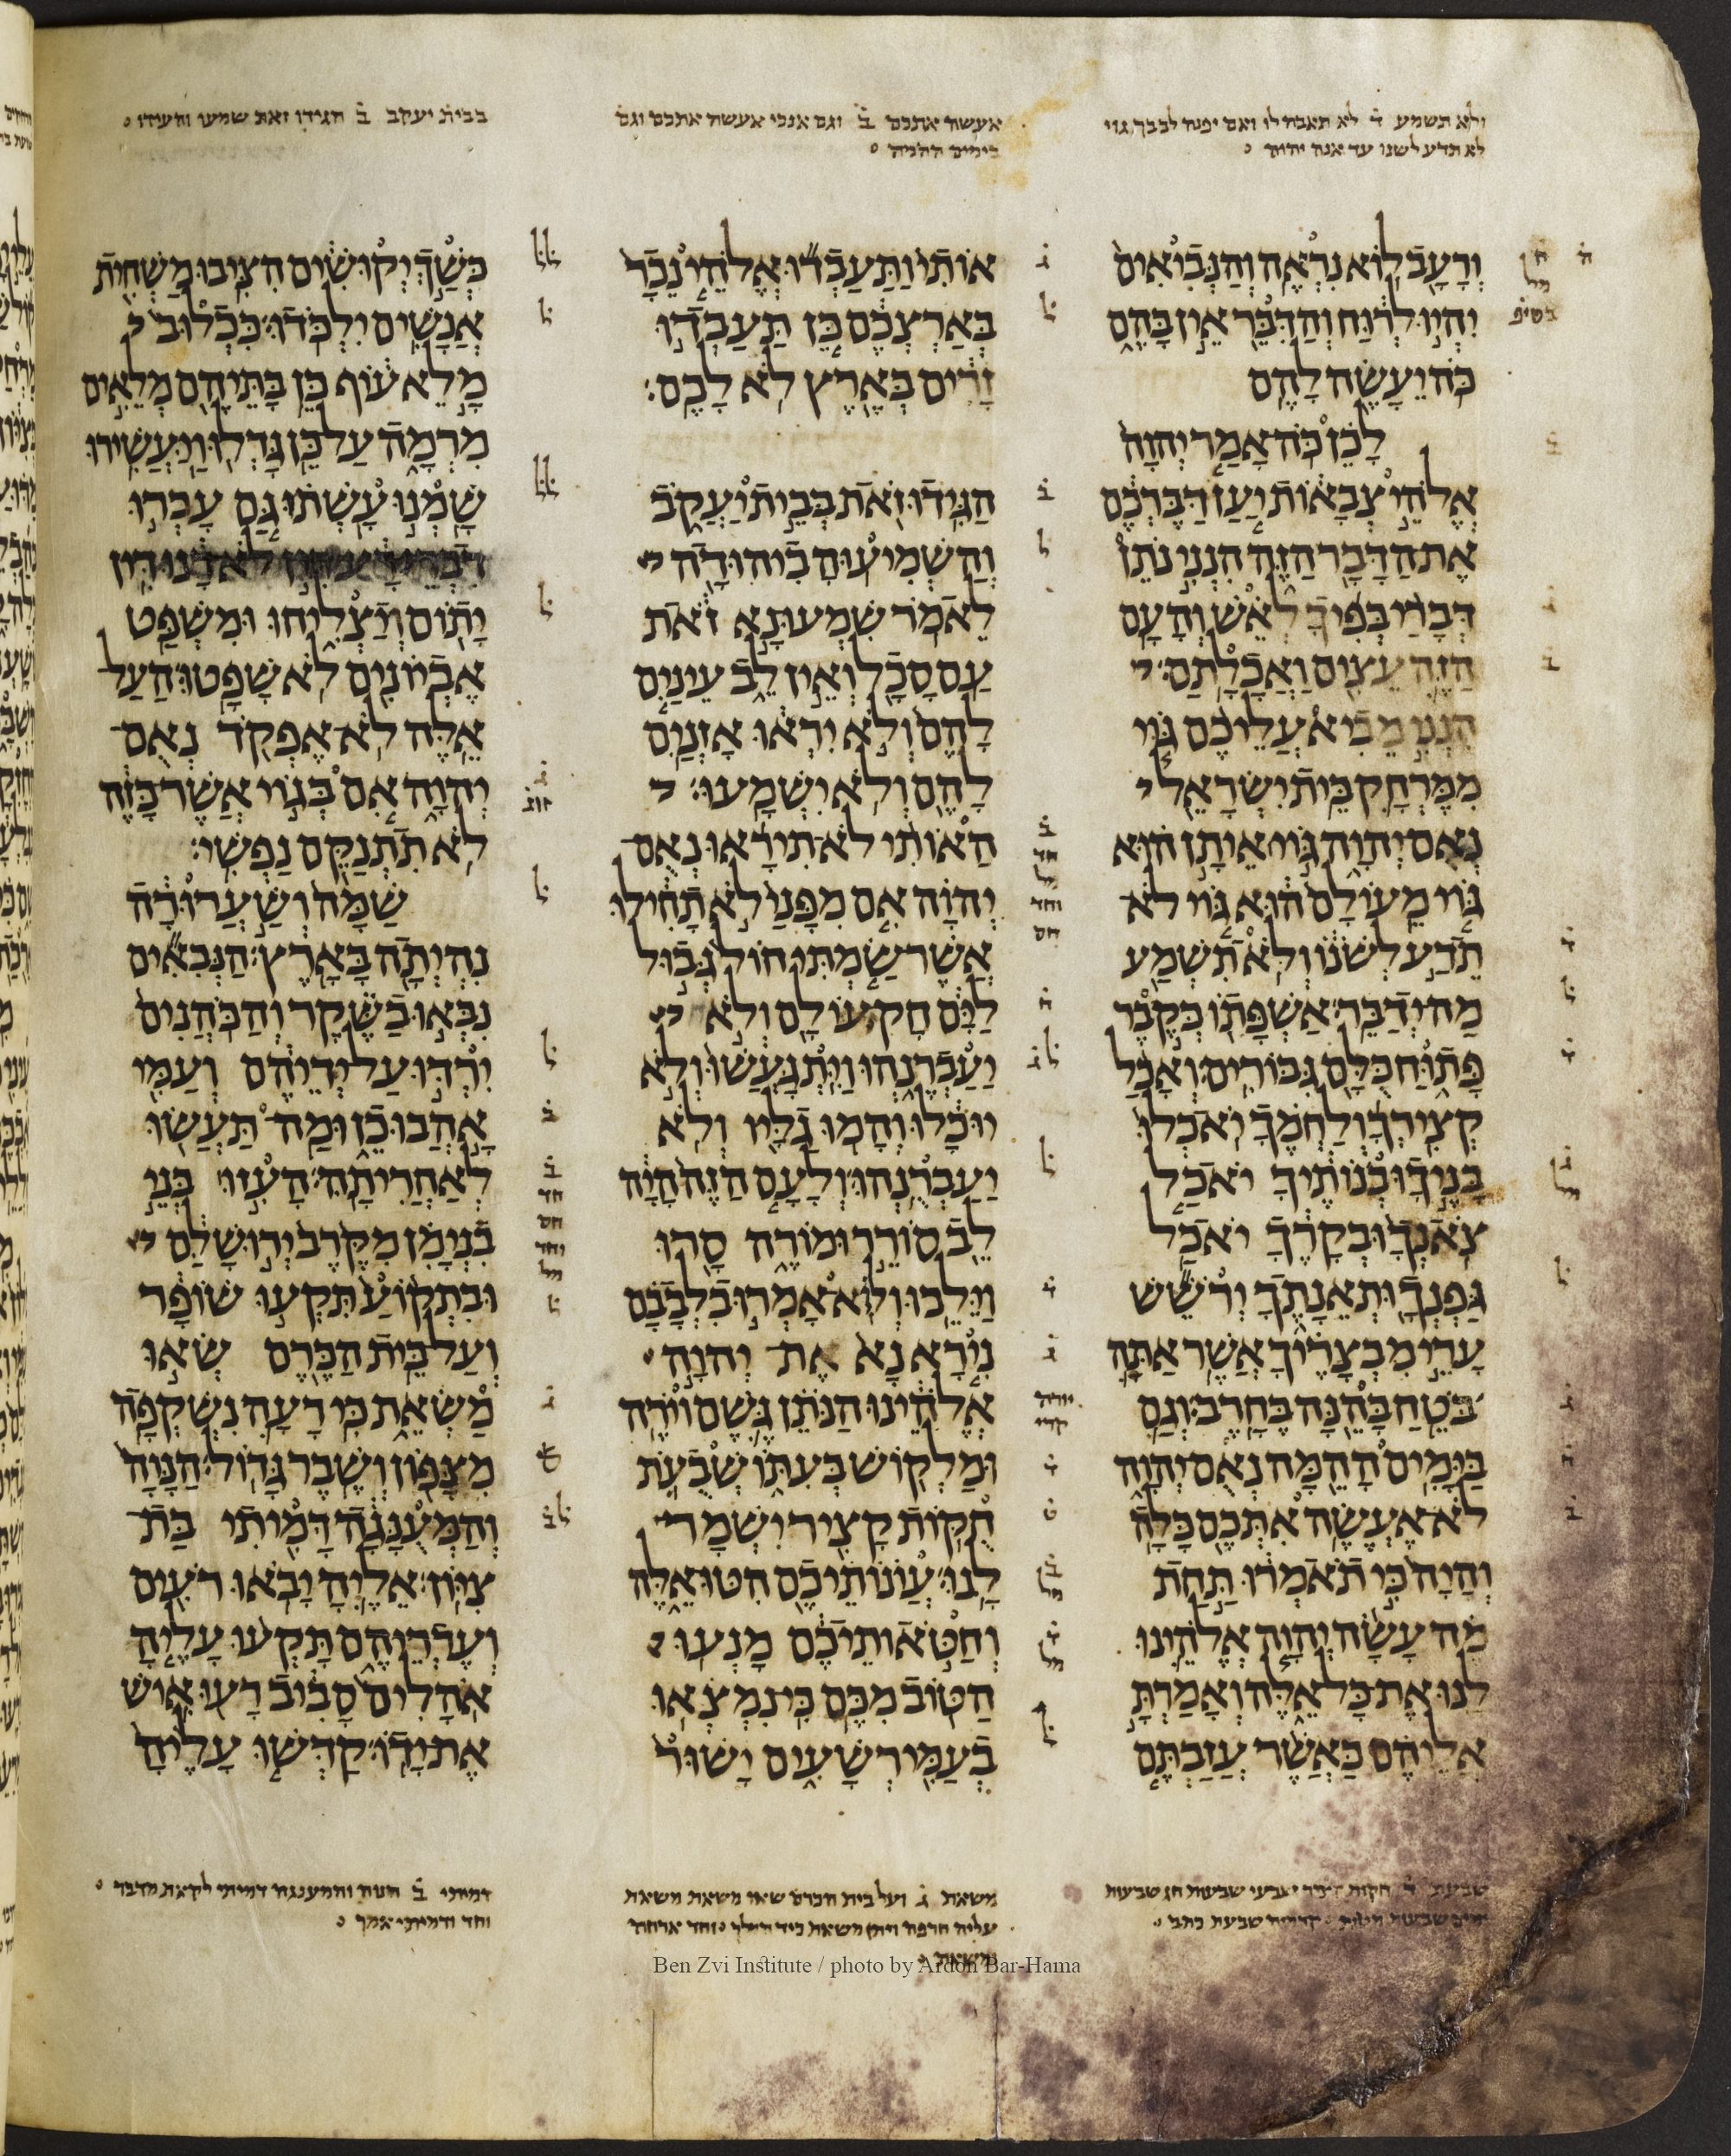 ולא תשמע ד לא תאבה לו ואם יפנה לבבך גוי
לא תדע לשנו עד אנה יהוה
אעשה אתכם ב וגם אנכי אעשה אתכם וגם
בימים ההמה
בבית יעקב ב הגידו זאת שמעו והעידו
וְרָעָב לוֹא נִרְאֶה וְהַנְּבִיאִים
יִהְיוּ לְרוּחַ וְהַדִּבֵּר אֵין בָּהֶם
כֹּה יֵעָשֶׂה לָהֶם
לָכֵן כֹּה אָמַר יְהוָה
אֱלֹהֵי צְבָאוֹת יַעַן דַּבֶּרְכֶם
אֶת הַדָּבָר הַזֶּה הִנְנִי נֹתֵן
דְּבָרַי בְּפִיךָ לְאֵשׁ וְהָעָם
הַזֶּה עֵצִים וַאֲכָלָתַם׃
הִנְנִי מֵבִיא עֲלֵיכֶם גּוֹי
מִמֶּרְחָק בֵּית יִשְׂרָאֵל
נְאֻם יְהוָה גּוֹי אֵיתָן הוּא
גּוֹי מֵעוֹלָם הוּא גּוֹי לֹא
תֵדַע לְשֹׁנוֹ וְלֹא תִשְׁמַע
מַה יְדַבֵּר׃ אַשְׁפָּתוֹ כְּקֶבֶר
פָּתוּחַ כֻּלָּם גִּבּוֹרִים׃ וְאָכַל
קְצִירְךָ וְלַחְמֶךָ יֹאכְלוּ
בָּנֶיךָ וּבְנוֹתֶיךָ יֹאכַל
צֹאנְךָ וּבְקָרֶךָ יֹאכַל
גַּפְנְךָ וּתְאֵנָתֶךָ יְרֹשֵׁשׁ
עָרֵי מִבְצָרֶיךָ אֲשֶׁר אַתָּה
בֹּטֵחַ בָּהֵנָּה בֶּחָרֶב׃ וְגַם
בַּיָּמִים הָהֵמָּה נְאֻם יְהוָה
לֹא־אֶעֱשֶׂה אִתְּכֶם כָּלָה׃
וְהָיָה כִּי תֹאמְרוּ תַּחַת
מֶה עָשָׂה יְהוָה אֱלֹהֵינוּ
לָנוּ אֶת־כָּל־אֵלֶּה וְאָמַרְתָּ
אֲלֵיהֶם כַּאֲשֶׁר עֲזַבְתֶּם
אוֹתִי וַתַּעַבְדוּ אֱלֹהֵי נֵכָר
בְּאַרְצְכֶם כֵּן תַּעַבְדוּ
זָרִים בְּאֶרֶץ לֹא לָכֶם׃
הַגִּידוּ זֹאת בְּבֵית יַעֲקֹב
וְהַשְׁמִיעוּהָ בִיהוּדָה
לֵאמֹר׃ שִׁמְעוּ־נָא זֹאת
עַם סָכָל וְאֵין לֵב עֵינַיִם
לָהֶם וְלֹא יִרְאוּ אָזְנַיִם
לָהֶם וְלֹא יִשְׁמָעוּ׃
הַאוֹתִי לֹא־תִירָאוּ נְאֻם־
יְהוָה אִם מִפָּנַי לֹא תָחִילוּ
אֲשֶׁר שַׂמְתִּי חוֹל גְּבוּל
לַיָּם חָק־עוֹלָם וְלֹא
יַעַבְרֶנְהוּ וַיִּתְגָּעֲשׁוּ וְלֹא
יוּכָלוּ וְהָמוּ גַלָּיו וְלֹא
יַעַבְרֻנְהוּ׃ וְלָעָם הַזֶּה הָיָה
לֵב סוֹרֵר וּמוֹרֶה סָרוּ
וַיֵּלֵכוּ׃ וְלֹא־אָמְרוּ בִלְבָבָם
נִירָא נָא אֶת־ יְהוָה
אֱלֹהֵינוּ הַנֹּתֵן גֶּשֶׁם וירה
וּמַלְקוֹשׁ בְּעִתּוֹ שְׁבֻעֹת
חֻקּוֹת קָצִיר יִשְׁמָר־
לָנוּ׃ עֲוֺנוֹתֵיכֶם הִטּוּ־אֵלֶּה
וְחַטֹּאותֵיכֶם מָנְעוּ
הַטּוֹב מִכֶּם׃ כִּי־נִמְצְאוּ
בְעַמִּי רְשָׁעִים יָשׁוּר
כְּשַׁךְ יְקוּשִׁים הִצִּיבוּ מַשְׁחִית
אֲנָשִׁים יִלְכֹּדוּ׃ כִּכְלוּב
מָלֵא עוֹף כֵּן בָּתֵּיהֶם מְלֵאִים
מִרְמָה עַל־כֵּן גָּדְלוּ וַיַּעֲשִׁירוּ׃
שָׁמְנוּ עָשְׁתוּ גַּם עָבְרוּ
דִבְרֵי־רָע דִּין לֹא־דָנוּ דִּין
יָתוֹם וְיַצְלִיחוּ וּמִשְׁפַּט
אֶבְיוֹנִים לֹא שָׁפָטוּ׃ הַעַל
אֵלֶּה לֹא־אֶפְקֹד נְאֻם־
יְהוָה אִם בְּגוֹי אֲשֶׁר־כָּזֶה
לֹא תִתְנַקֵּם נַפְשִׁי׃
שַׁמָּה וְשַׁעֲרוּרָה
נִהְיְתָה בָּאָרֶץ׃ הַנְּבִאִים
נִבְּאוּ בַשֶּׁקֶר וְהַכֹּהֲנִים
יִרְדּוּ עַל־יְדֵיהֶם וְעַמִּי
אָהֲבוּ כֵן וּמַה־תַּעֲשׂוּ
לְאַחֲרִיתָהּ׃ הָעִזוּ בְּנֵי
בִנְיָמִן מִקֶּרֶב יְרוּשָׁלַ͏ִם
וּבִתְקוֹעַ תִּקְעוּ שׁוֹפָר
וְעַל־בֵּית הַכֶּרֶם שְׂאוּ
מַשְׂאֵת כִּי רָעָה נִשְׁקְפָה
מִצָּפוֹן וְשֶׁבֶר גָּדוֹל׃ הַנָּוָה
וְהַמְּעֻנָּגָה דָּמִיתִי בַּת־
צִיּוֹן׃ אֵלֶיהָ יָבֹאוּ רֹעִים
וְעֶדְרֵיהֶם תָּקְעוּ עָלֶיהָ
אֹהָלִים סָבִיב רָעוּ אִישׁ
אֶת־יָדוֹ׃ קַדְּשׁוּ עָלֶיהָ
משאת ג ועל בית הכרם שאו משאת משאת
עליה חרפה ויתן משאת ביד המלך וחד ארחה
ומשאת
דמיתי ב הנוה והמענגה דמיתי לקאת מדבר
וחד ודמיתי אמך
Ben Zvi Institute / photo by Ardon Bar-Hama